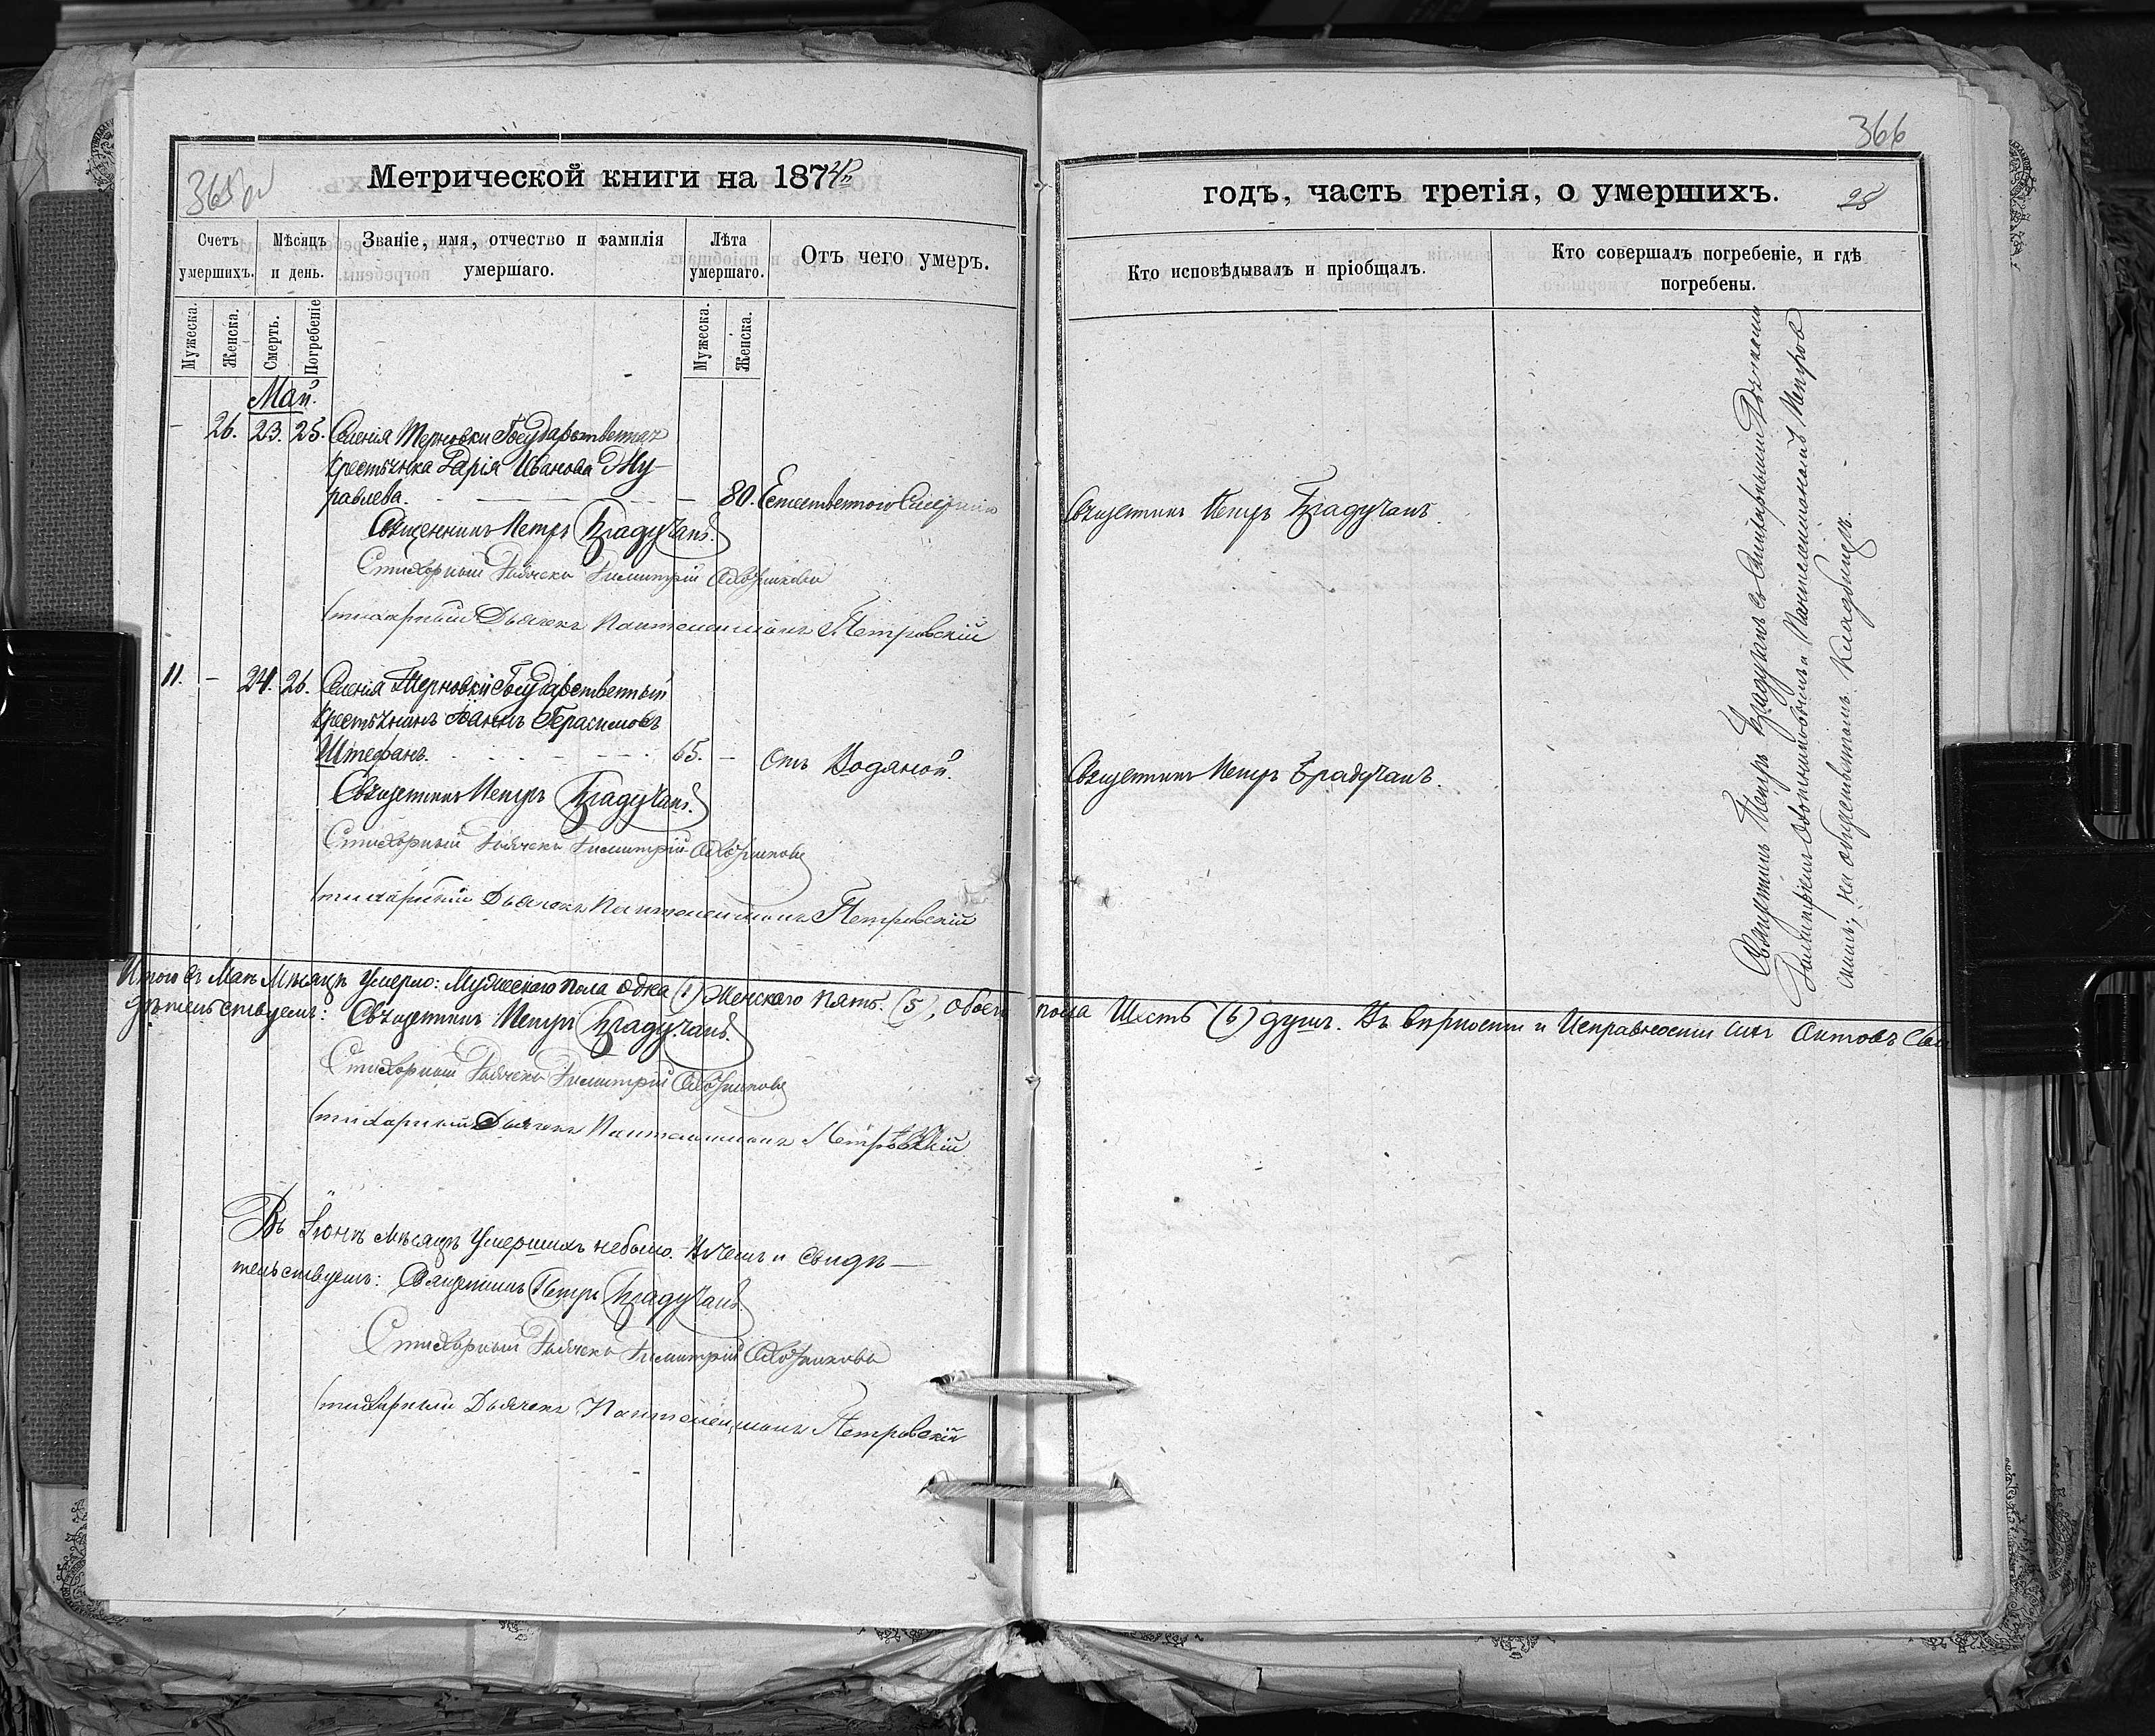 365 об
Метрической книги на 1874й
Счетъ умершихъ.
Мѣсяцъ и день.
Званіе, имя, отчество и фамилія умершаго.
Лѣта умершаго.
Отъ чего умеръ.
Мужеска.
Женска.
Смерть.
Погребеніе
Мужеска.
Женска.
Май.
— 26. 23. 25. Селенія Терновки Государственная
крестьянка Дарія Иванова Жу-
равлева. — 80. Естественною Смертію
Священникъ Петръ Брадучанъ.
Стихарный Дьячекъ Димитрій
Стихарный Дьячекъ Пантелеимонъ Петровскій
11. — 24. 26. Селенія Терновки Государственный
крестьянинъ Іоаннъ Герасимовъ
Штефанъ. 65. — Отъ Водяной.
Священникъ Петръ Брадучанъ.
Стихарный Дьячекъ Димитрій
Стихарный Дьячекъ Пантелеимонъ Петровскій
Итого въ Маѣ Мѣсяцѣ Умерло: Мужескаго пола одна (1) Женскаго пять (5), обоего
дѣтельствуемъ: Священникъ Петръ Брадучанъ.
Стихарный Дьячекъ Димитрій
Стихарный Дьячекъ Пантелеимонъ Петровскій
Въ Іюнѣ мѣсяцѣ Умершихъ небыло. Въ чемъ и свидѣ-
тельствуемъ: Священникъ Петръ Брадучанъ.
Стихарный Дьячекъ Димитрій
Стихарный Дьячекъ Пантелеимонъ Петровскій
366
годъ, часть третія, о умершихъ.
28
Кто исповѣдывалъ и пріобщалъ.
Кто совершалъ погребеніе, и гдѣ погребены.
Священникъ Петръ Брадучанъ.
Священникъ Петръ Брадучанъ.
Священникъ Петръ Брадучанъ съ Стихарными Дьячками
Димитріемъ и Пантелеимономъ Петров
скимъ; на общественномъ кладбищѣ.
пола Шесть (6) душъ. Въ вѣрности и Исправности сихъ Актовъ Сви